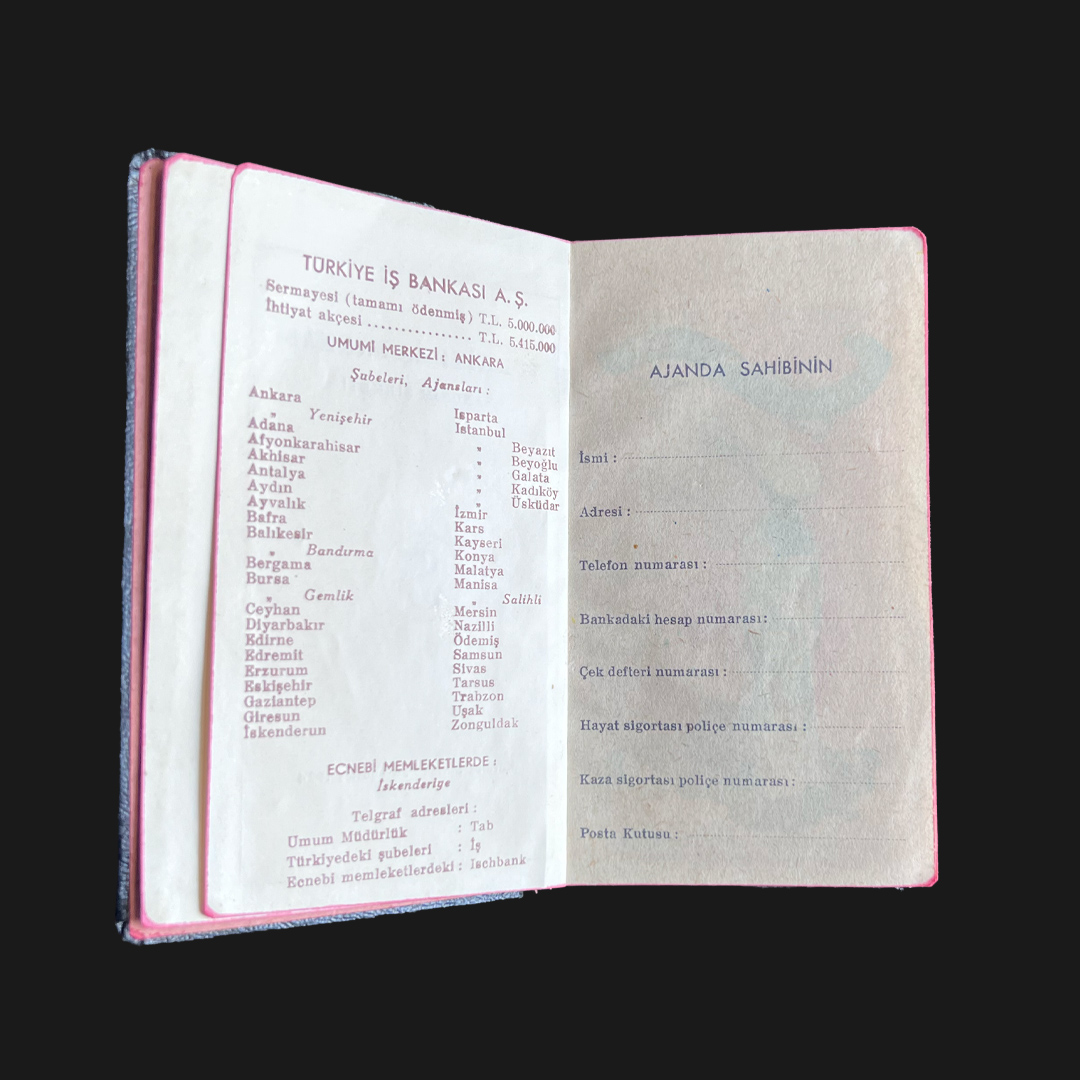 TÜRKİYE İŞ BANKASI A. Ş.
Sermayesi (tamamı ödenmiş) T.L. 5.000.000
İhtiyat akçesi ................ T.L. 5.415.000
UMUMİ MERKEZİ : ANKARA
Şubeleri, Ajansları :
Ankara
„ Yenişehir
Adana
Afyonkarahisar
Akhisar
Antalya
Aydın
Ayvalık
Bafra
Balıkesir
„ Bandırma
Bergama
Bursa
„ Gemlik
Ceyhan
Diyarbakır
Edirne
Edremit
Erzurum
Eskişehir
Gaziantep
Giresun
İskenderun
Isparta
Istanbul
„ Beyazıt
„ Beyoğlu
„ Galata
„ Kadıköy
„ Üsküdar
İzmir
Kars
Kayseri
Konya
Malatya
Manisa
„ Salihli
Mersin
Nazilli
Ödemiş
Samsun
Sivas
Tarsus
Trabzon
Uşak
Zonguldak
ECNEBİ MEMLEKETLERDE :
İskenderiye
Telgraf adresleri :
Umum Müdürlük : Tab
Türkiyedeki şubeleri : İş
Ecnebi memleketlerdeki : Ischbank
AJANDA SAHİBİNİN
İsmi :
Adresi :
Telefon numarası :
Bankadaki hesap numarası :
Çek defteri numarası :
Hayat sigortası poliçe numarası :
Kaza sigortası poliçe numarası :
Posta Kutusu :